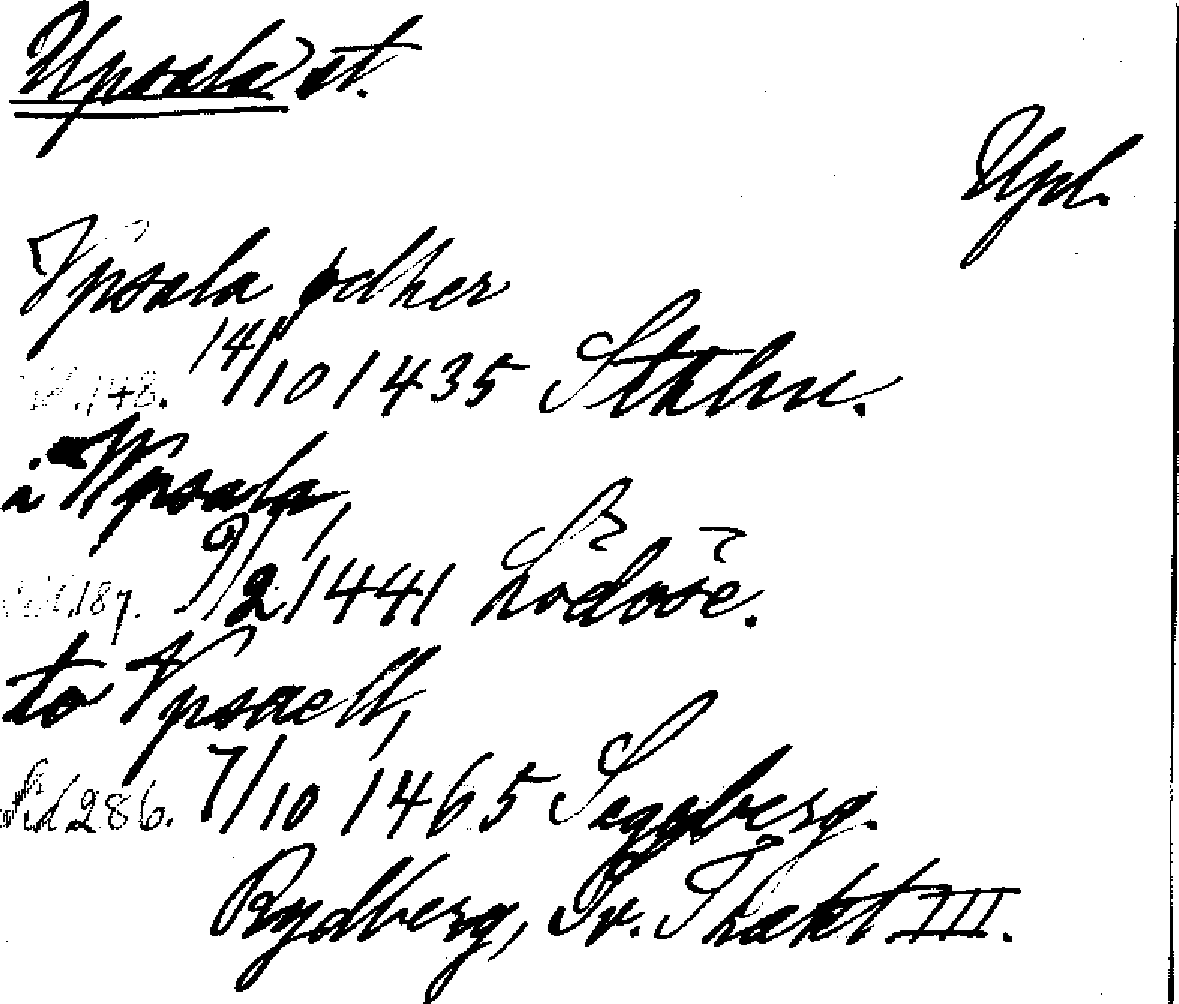 Upsala st.
Upl.
Vpsala ødher
sid. 148. 14/10 1435 Sthlm.
i Wpsala,
sid 187. 9/2 1441 Lödöse.
to Vpsaell,
Sid 286. 7/10 1465 Seggberg.
Rydberg, Sv. Trakt III.